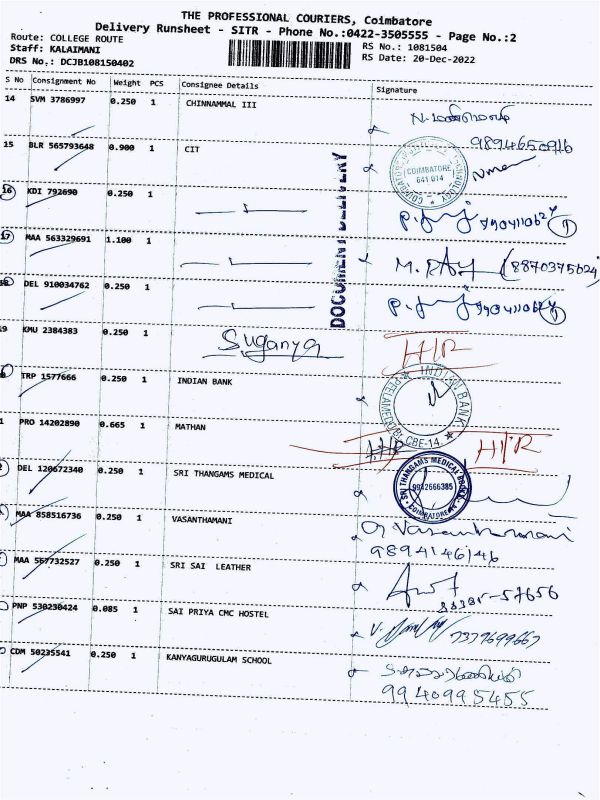 THE PROFESSIONAL COURIERS, Coimbatore
Delivery Runsheet - SITR - Phone No.:0422-3505555 - Page No.:2
Route: COLLEGE ROUTE
Staff: KALAIMANI RS No.: 1081504
DRS No.: DCJB108150402 RS Date: 20-Dec-2022
S No Consignment No Weight PCS Consignee Details Signature
14 SVM 3786997 0.250 1 CHINNAMMAL III
9894650916
15 BLR 565793648 0.900 1 CIT
COIMBATORE
641 014
16 KDI 792690 0.250 1
17 MAA 563329691 1.100 1 M. RAJ (8870375624)
DEL 910034762 0.250 1
DOCUMENT DELIVERY
9 KMU 2384383 0.250 1 Suganya H/R
TRP 1577666 0.250 1 INDIAN BANK
INDIAN BANK
CBE-14
PRO 14202890 0.665 1 MATHAN H/R H/R
DEL 120672340 0.250 1 SRI THANGAMS MEDICAL
SRI THANGAMS MEDICAL
9942666385
COIMBATORE
MAA 858516736 0.250 1 VASANTHAMANI
G Vasanthamani
9894146146
MAA 567732527 0.250 1 SRI SAI LEATHER
PNP 530230424 0.085 1 SAI PRIYA CMC HOSTEL
CDM 50235541 0.250 1 KANYAGURUGULAM SCHOOL
9940995455